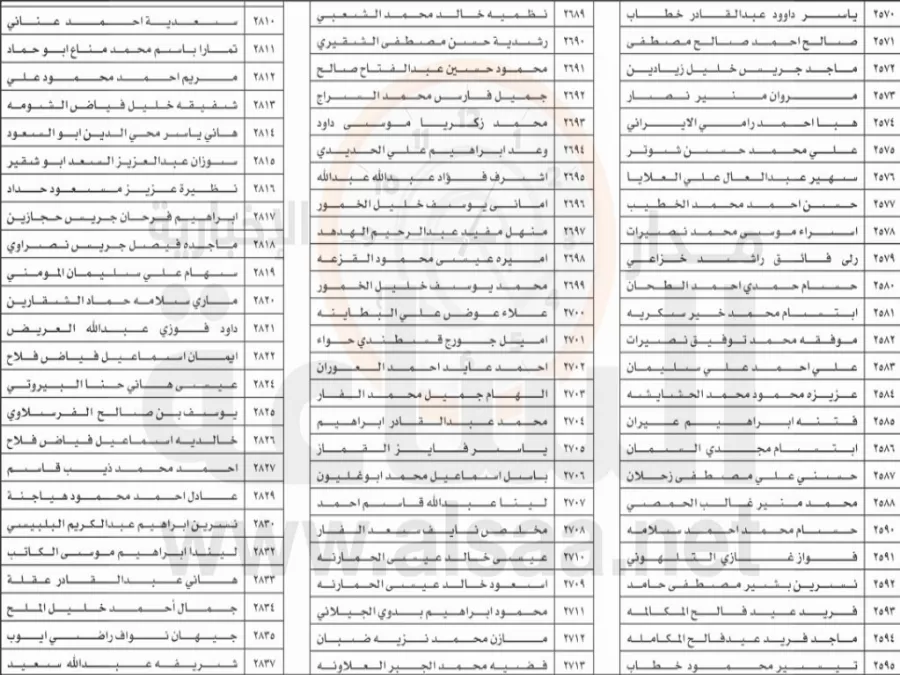 ٢٥٧٠ ياسر داوود عبدالقادر خطاب
٢٥٧١ صالح احمد صالح مصطفى
٢٥٧٢ ماجد جريس خليل زيادين
٢٥٧٣ مروان منير نصار
٢٥٧٤ هبا احمد رامي الايراني
٢٥٧٥ علي محمد حسن شوتر
٢٥٧٦ سهير عبدالعال علي العلايا
٢٥٧٧ حسن احمد محمد الخطيب
٢٥٧٨ اسراء موسى محمد نصيرات
٢٥٧٩ رلى فائق راشد خزاعي
٢٥٨٠ حسام حمدي احمد الطحان
٢٥٨١ ابتسام محمد خير سكريه
٢٥٨٢ موفقه محمد توفيق نصيرات
٢٥٨٣ علي احمد علي سليمان
٢٥٨٤ عزيزه محمود محمد الحشايشه
٢٥٨٥ فتنه ابراهيم عيران
٢٥٨٦ ابتسام مجدي السمان
٢٥٨٧ حسني علي مصطفى زحلان
٢٥٨٨ محمد منير غالب الحمصي
٢٥٩٠ حسام محمد احمد سلامه
٢٥٩١ فواز غازي التلهوني
٢٥٩٢ نسرين بشير مصطفى حامد
٢٥٩٣ فريد عيد فالح المكالمه
٢٥٩٤ ماجد فريد عيدفالح المكامله
٢٥٩٥ تيسير محمود خطاب
٢٦٨٩ نظميه خالد محمد الشعبي
٢٦٩٠ رشدية حسن مصطفى الشقيري
٢٦٩١ محمود حسين عبدالفتاح صالح
٢٦٩٢ جميل فارس محمد السراج
٢٦٩٣ محمد زكريا موسى داود
٢٦٩٤ وعد ابراهيم علي الحديدي
٢٦٩٥ اشرف فؤاد عبدالله عبدالله
٢٦٩٦ اماني يوسف خليل الخمور
٢٦٩٧ منهل مفيد عبدالرحيم الهدهد
٢٦٩٨ اميره عيسى محمود القزعه
٢٦٩٩ محمد يوسف خليل الخمور
٢٧٠٠ علاء عوض علي البطاينه
٢٧٠١ اميل جورج قسطندي حواء
٢٧٠٢ احمد عايد احمد العوران
٢٧٠٣ الهام جميل محمد الفار
٢٧٠٤ محمد عبدالقادر ابراهيم
٢٧٠٥ ياسر فايز القماز
٢٧٠٦ باسل اسماعيل محمد ابوغليون
٢٧٠٧ لينا عبدالله قاسم احمد
٢٧٠٨ مخلص نايف سعد الفار
٢٧١٠ عيسى خالد عيسى الحمارنه
٢٧٠٩ اسعود خالد عيسى الحمارنه
٢٧١١ محمود ابراهيم بدوي الجيلاني
٢٧١٢ مازن محمد نزيه ضبان
٢٧١٣ فضيه محمد الجبر العلاونه
٢٨١٠ سعدية احمد عناني
٢٨١١ تمارا باسم محمد مناع ابو حماد
٢٨١٢ مريم احمد محمود علي
٢٨١٣ شفيقه خليل فياض الشومه
٢٨١٤ هاني ياسر محي الدين ابو السعود
٢٨١٥ سوزان عبدالعزيز السعد ابو شقير
٢٨١٦ نظيرة عزيز مسعود حداد
٢٨١٧ ابراهيم فرحان جريس حجازين
٢٨١٨ ماجده فيصل جريس نصراوي
٢٨١٩ سهام علي سليمان المومني
٢٨٢٠ ماري سلامه حماد الشقارين
٢٨٢١ داود فوزي عبدالله العريض
٢٨٢٢ ايمان اسماعيل فياض فلاح
٢٨٢٤ عيسى هاني حنا البيروتي
٢٨٢٥ يوسف بن صالح الفرسلاوي
٢٨٢٦ خالديه اسماعيل فياض فلاح
٢٨٢٧ احمد محمد ذيب قاسم
٢٨٢٩ عادل احمد محمود هياجنة
٢٨٣٠ نسرين ابراهيم عبدالكريم البلبيسي
٢٨٣٢ ليندا ابراهيم موسى الكاتب
٢٨٣٣ هاني عبدالقادر عقلة
٢٨٣٤ جمال أحمد خليل الملح
٢٨٣٥ جيهان نواف راضي ايوب
٢٨٣٧ شريفه عبدالله سعيد
مدار الساعة الإخبارية
www.alsaa.net